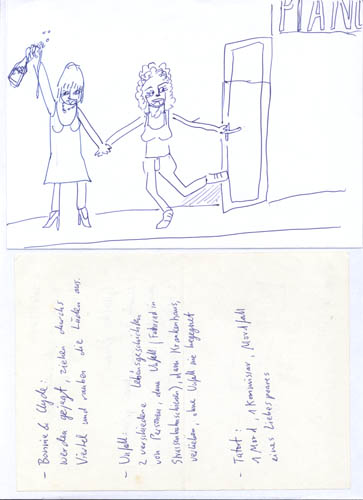 PIAN
- Bonnie & Clyde:
werden gejagt, ziehen durchs
Viertel und rauben die Läden aus.
- Unfall:
2 verschiedene Lebensgeschichten
von Personen, dann Unfall (Fahrrad in
Strassenbahnschienen), dann Krankenhaus,
verlieben, ohne Unfall nie begegnet
- Tatort:
1 Mord, 1 Kommissar, Mordfall
eines Liebespaares